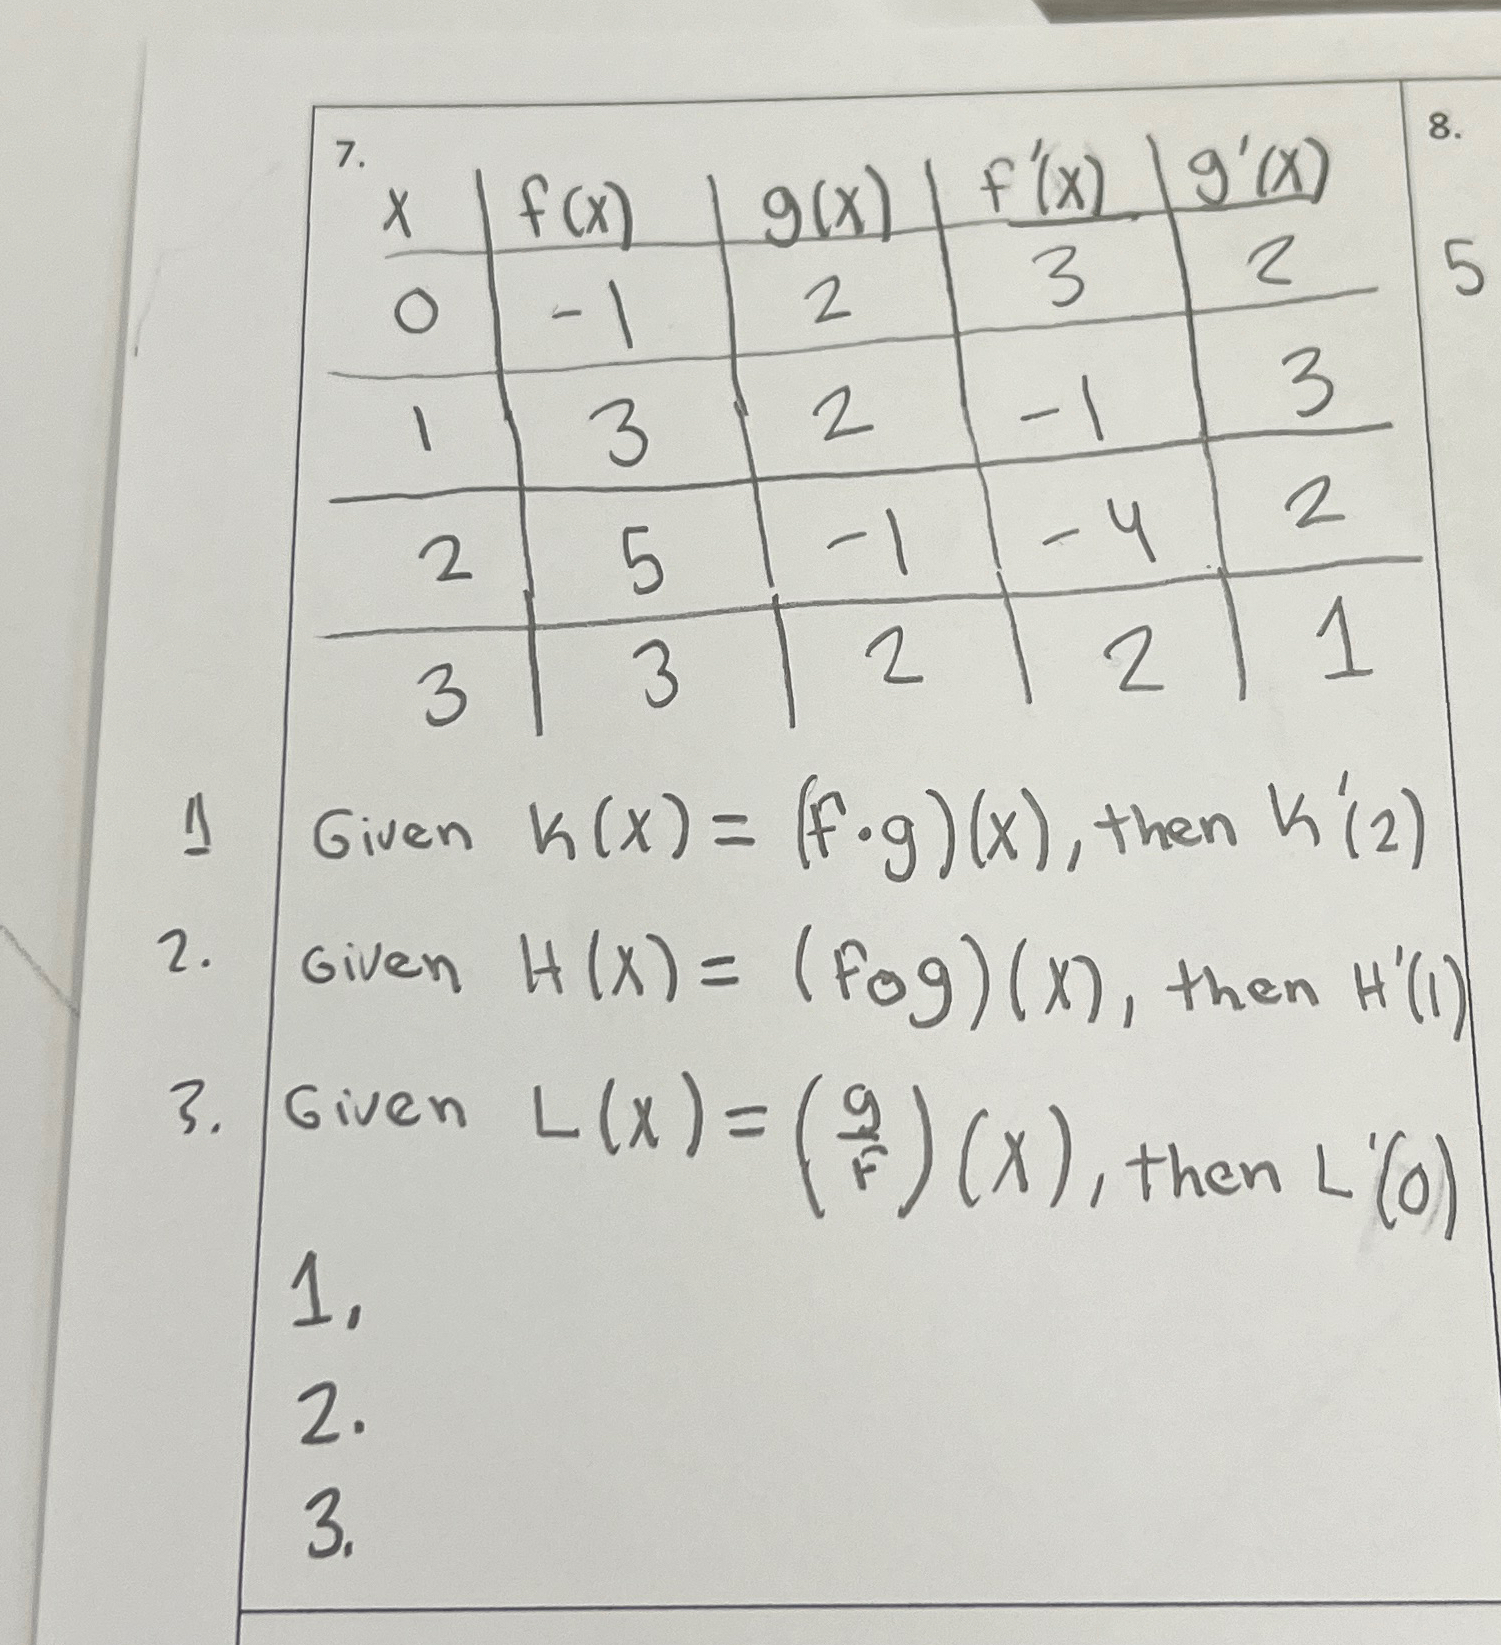 7.
8.
x f(x) g(x) f'(x) g'(x)
0 -1 2 3 2
5
1 3 2 -1 3
2 5 -1 -4 2
3 3 2 2 1
1 Given K(x) = (f·g)(x), then K'(2)
2. Given H(x) = (fog)(x), then H'(1)
3. Given L(x) = (g/f)(x), then L'(0)
1.
2.
3.